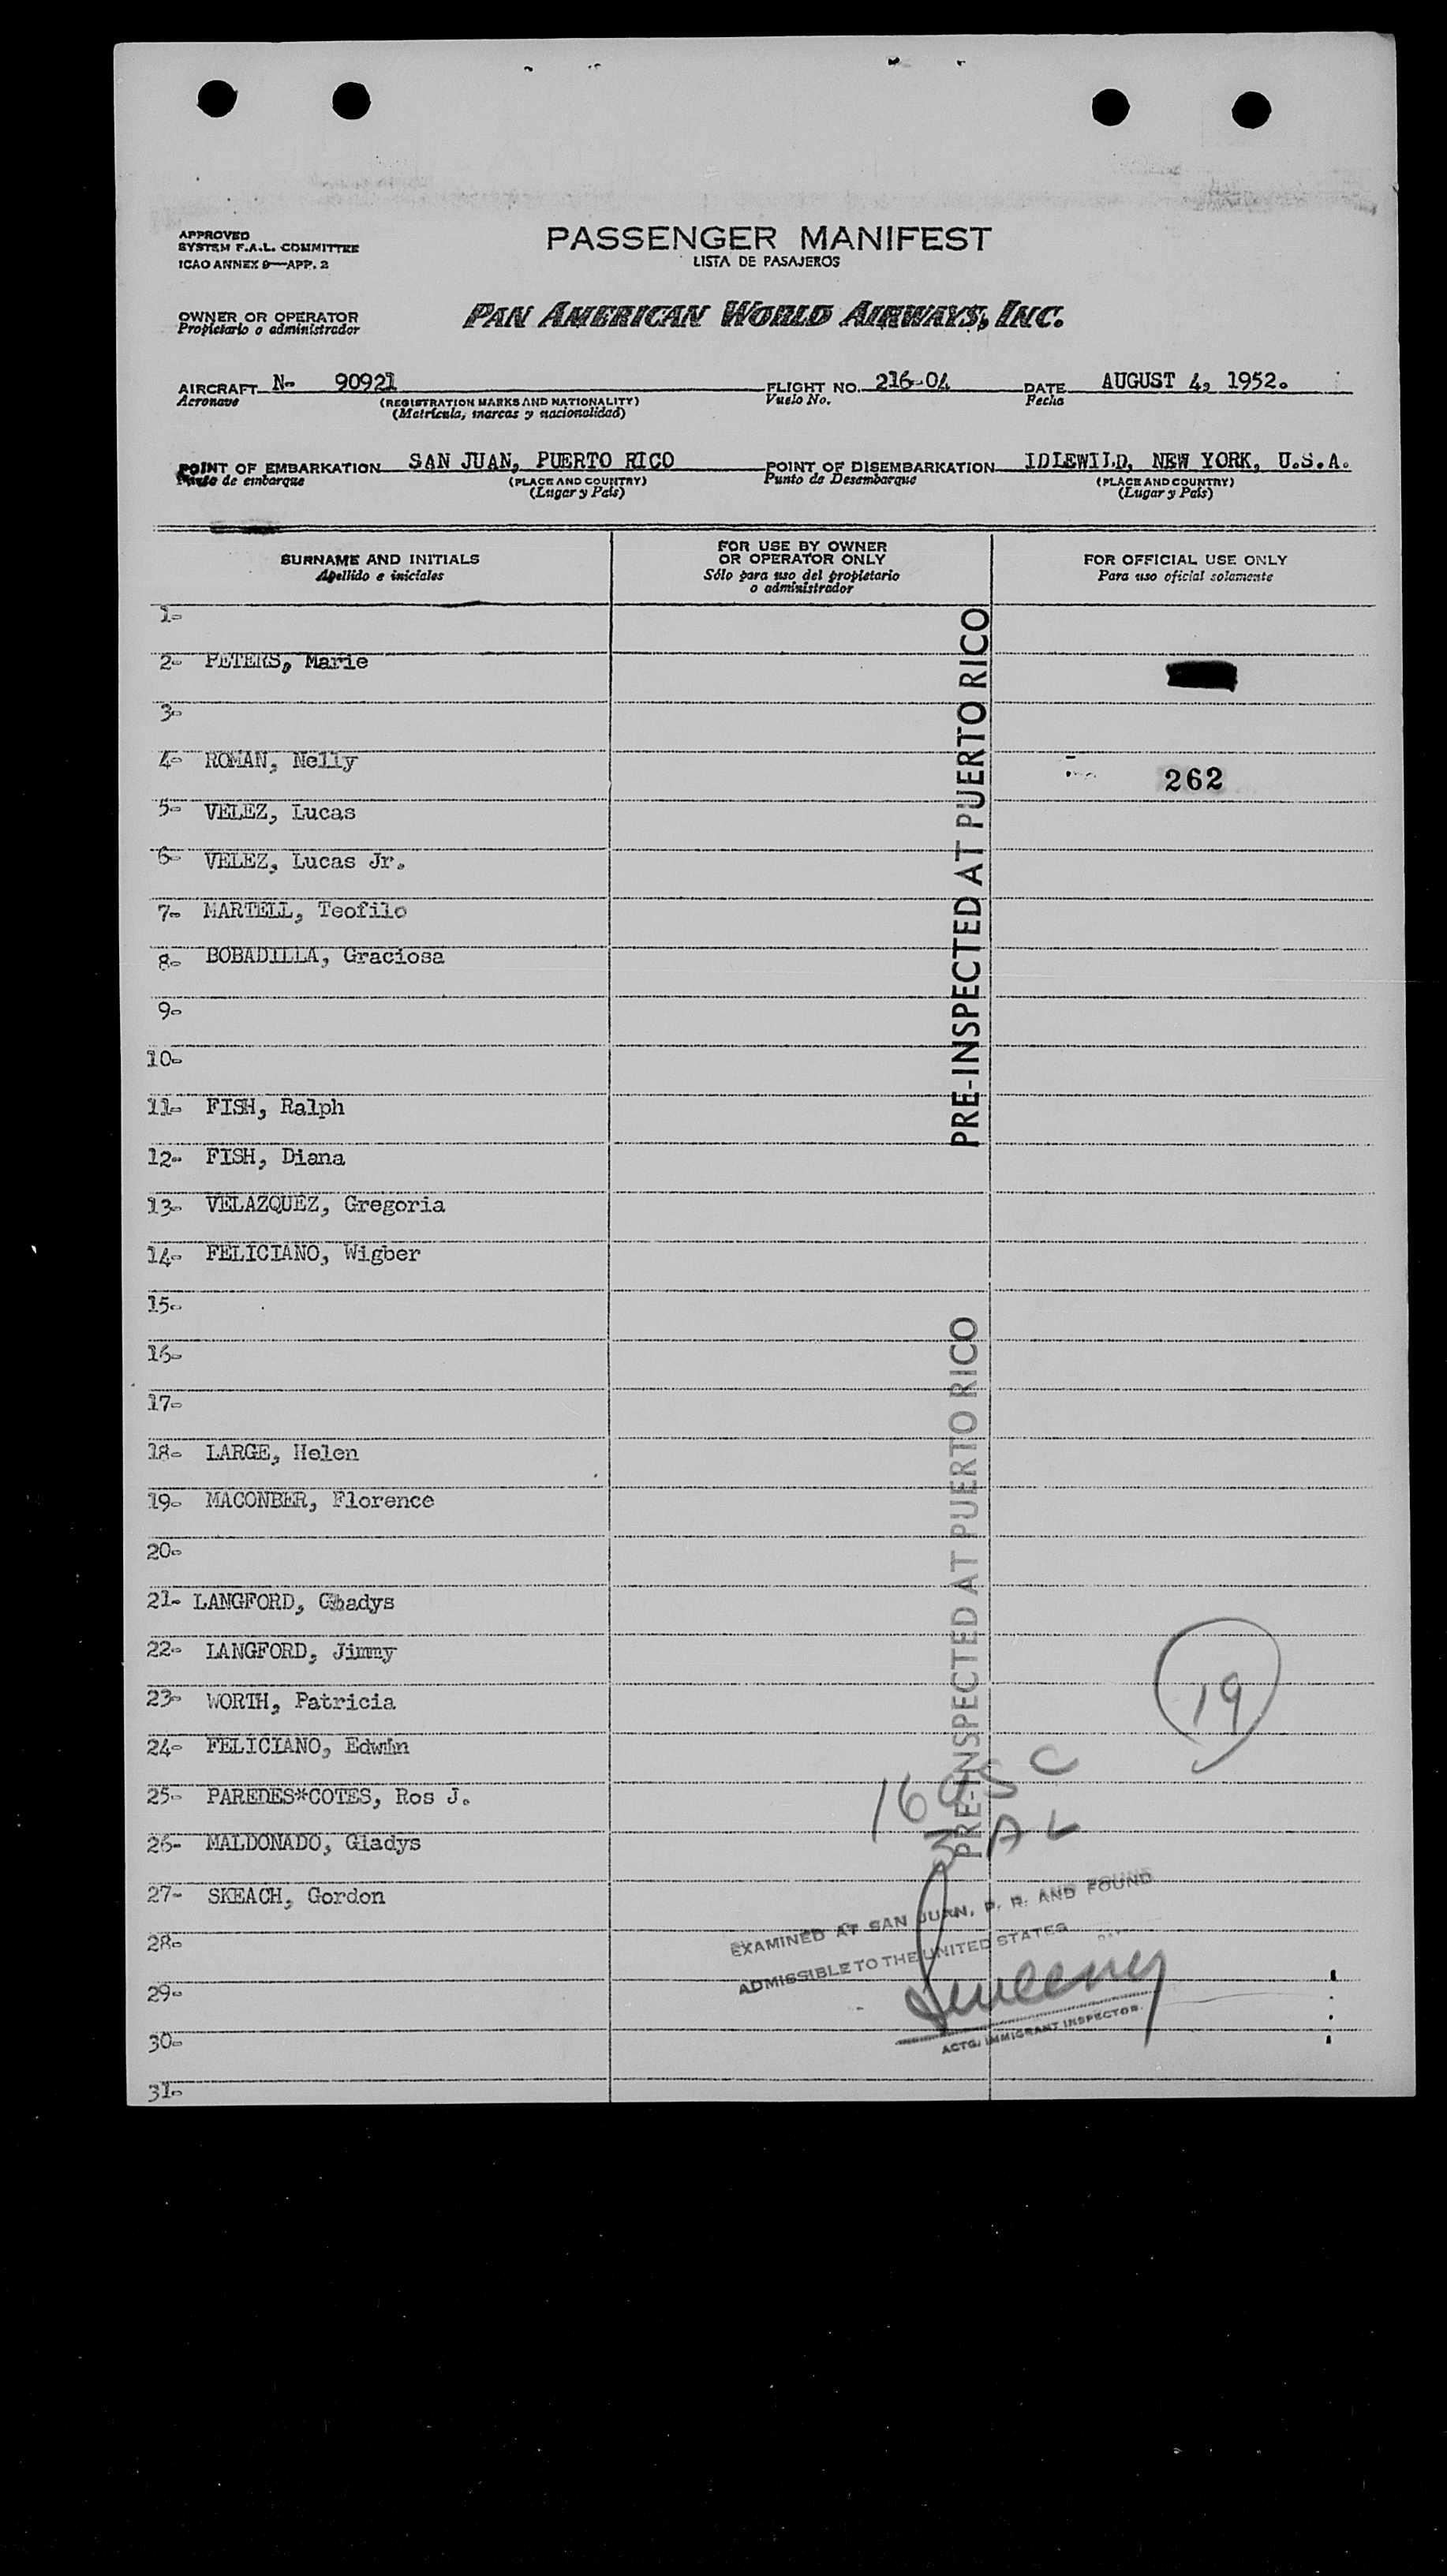 APPROVED
SYSTEM F.A.L. COMMITTEE
ICAO ANNEX 9—APP. 2
PASSENGER MANIFEST
LISTA DE PASAJEROS
OWNER OR OPERATOR
Propietario o administrador
PAN AMERICAN WORLD AIRWAYS, INC.
AIRCRAFT N- 90921 FLIGHT NO. 216-04 DATE AUGUST 4, 1952.
Aeronave (REGISTRATION MARKS AND NATIONALITY) Vuelo No. Fecha
(Matrícula, marcas y nacionalidad)
POINT OF EMBARKATION SAN JUAN, PUERTO RICO POINT OF DISEMBARKATION IDLEWILD, NEW YORK, U.S.A.
Punto de embarque (PLACE AND COUNTRY) Punto de Desembarque (PLACE AND COUNTRY)
(Lugar y País) (Lugar y País)
SURNAME AND INITIALS
Apellido e iniciales
FOR USE BY OWNER
OR OPERATOR ONLY
Sólo para uso del propietario
o administrador
FOR OFFICIAL USE ONLY
Para uso oficial solamente
1-
2- PETERS, Marie
3-
4- ROMAN, Nelly
262
5- VELEZ, Lucas
6- VELEZ, Lucas Jr.
7- MARTELL, Teofilo
8- BOBADILLA, Graciosa
9-
10-
11- FISH, Ralph
12- FISH, Diana
13- VELAZQUEZ, Gregoria
14- FELICIANO, Wigber
15-
16-
17-
18- LARGE, Helen
19- MACONBER, Florence
20-
21- LANGFORD, Ghadys
22- LANGFORD, Jimmy
23- WORTH, Patricia
24- FELICIANO, Edwin
25- PAREDES*COTES, Ros J.
26- MALDONADO, Gladys
27- SKEACH, Gordon
28-
29-
30-
31-
PRE-INSPECTED AT PUERTO RICO
PRE-INSPECTED AT PUERTO RICO
19
16 USC
3 AL
EXAMINED AT SAN JUAN, P. R. AND FOUND
ADMISSIBLE TO THE UNITED STATES
Sweeny
ACTG. IMMIGRANT INSPECTOR